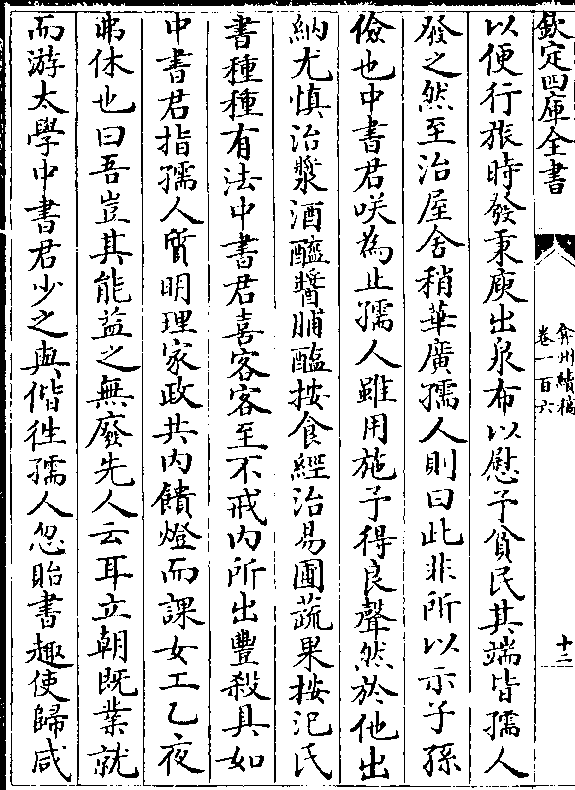 欽定四庫全書
弇州續稿
卷一百六
十二
以便行旅時發秉庾出泉布以慰予貧民其端皆孺人
發之然至治屋舍稍華廣孺人則曰此非所以示子孫
儉也中書君咲為止孺人雖用施予得良聲然於他出
納尤慎治漿酒醯醬脯醢按食經治昜圃蔬果按氾氏
書種種有法中書君喜客客至不戒内所出豐殺具如
中書君指孺人質明理家政共内饋燈而課女工乙夜
弗休也曰吾豈其能益之無廢先人云耳立朝既業就
而游太學中書君少之與偕徃孺人忽貽書趣使歸咸